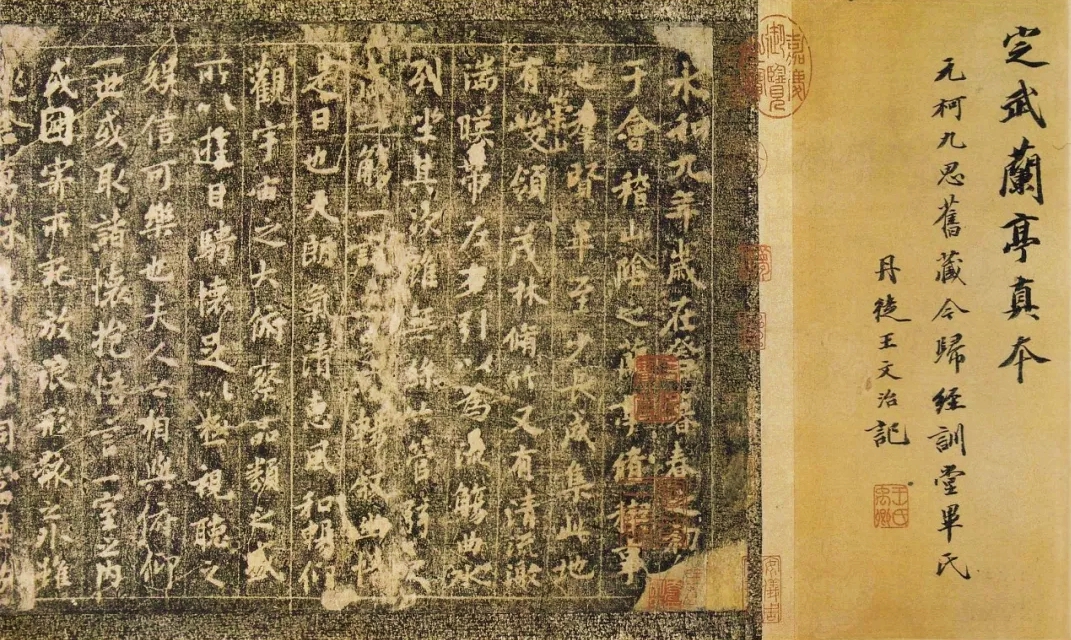 定武蘭亭真本
元柯九思舊藏今歸經訓堂畢氏
丹徒王文治記
王氏禹卿
嘉慶御覽
永和九年歲在癸丑暮春之初
于會稽山陰之蘭亭脩稧事
也羣賢畢至少長咸集此地
崇山
有峻領茂林脩竹又有清流激
湍暎帶左右引以為流觴曲水
列坐其次雖無絲竹管弦之
盛一觴一詠亦足以暢敘幽情
是日也天朗氣清惠風和暢仰
觀宇宙之大俯察品類之盛
所以遊目騁懷足以極視聽之
娛信可樂也夫人之相與俯仰
一世或取諸懷抱悟言一室之內
或因寄所託放浪形骸之外雖